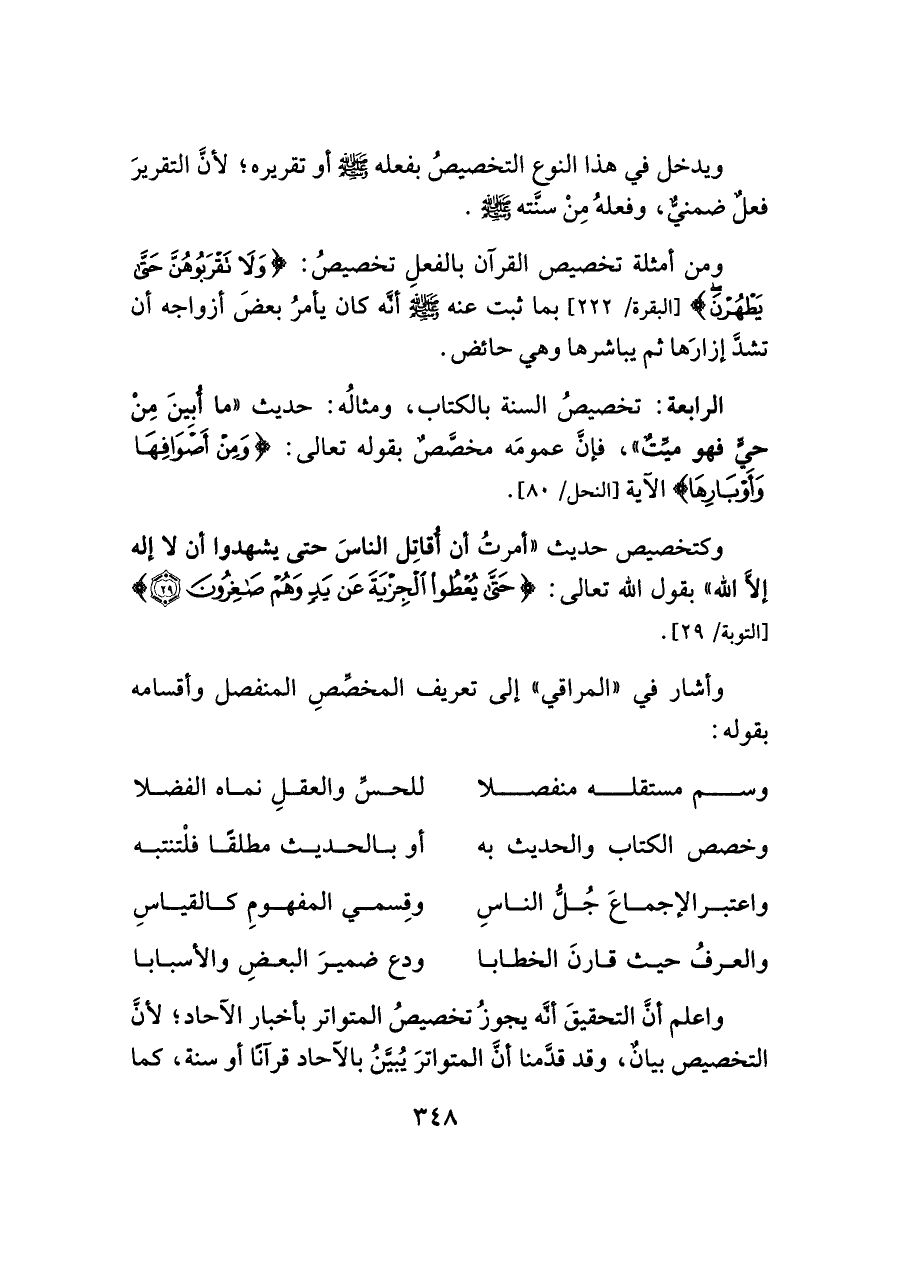 ويدخل في هذا النوع التخصيصُ بفعله ﷺ أو تقريره؛ لأنَّ التقريرَ
فعلٌ ضمنيٌّ، وفعلهُ مِنْ سنَّته ﷺ .
ومن أمثلة تخصيص القرآن بالفعلِ تخصيصُ: ﴿وَلَا نَقْرَبُوهُنَّ حَتَّىٰ
يَطْهُرْنَۖ﴾ [البقرة/ ٢٢٢] بما ثبت عنه ﷺ أنَّه كان يأمرُ بعضَ أزواجه أن
تشدَّ إزارَها ثم يباشرها وهي حائض.
الرابعة: تخصيصُ السنة بالكتاب، ومثالُه: حديث «ما أُبينَ مِنْ
حيٍّ فهو ميِّتٌ»، فإنَّ عمومَه مخصَّصٌ بقوله تعالى: ﴿وَمِنْ أَصْوَافِهَا
وَأَوْبَارِهَا﴾ الآية [النحل/ ٨٠].
وكتخصيص حديث «أمرتُ أن أُقاتِل الناسَ حتى يشهدوا أن لا إله
إلاَّ الله» بقول الله تعالى: ﴿حَتَّىٰ يُعْطُوا۟ ٱلْجِزْيَةَ عَن يَدٍ وَهُمْ صَٰغِرُونَ ٢٩﴾
[التوبة/ ٢٩].
وأشار في «المراقي» إلى تعريف المخصِّصِ المنفصل وأقسامه
بقوله:
وسم مستقله منفصلا للحسِّ والعقلِ نماه الفضلا
وخصص الكتاب والحديث به أو بالحديث مطلقًا فلْتنتبه
واعتبر الإجماعَ جُلُّ الناسِ وقِسمي المفهومِ كالقياسِ
والعرفُ حيث قارنَ الخطابا ودع ضميرَ البعضِ والأسبابا
واعلم أنَّ التحقيقَ أنَّه يجوزُ تخصيصُ المتواتر بأخبار الآحاد؛ لأنَّ
التخصيص بيانٌ، وقد قدَّمنا أنَّ المتواترَ يُبيَّنُ بالآحاد قرآنًا أو سنة، كما
٣٤٨